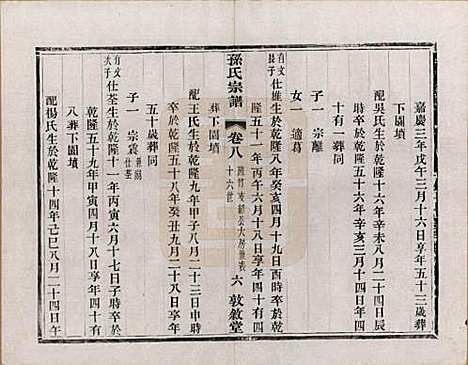 嘉慶三年戊午三月十六日享年五十三歲葬
下園墳
配吳氏生於乾隆十六年辛未八月二十四日辰
時卒於乾隆五十六年辛亥三月十四日享年四
十有一葬同
子一 宗離
女一 適葛
有文長子 仕雄生於乾隆八年癸亥四月二十九日酉時卒於乾
隆五十一年丙午六月十八日享年四十四歲
葬下園墳
孫氏宗譜 卷八 十六世 六 敦敘堂
配王氏生於乾隆九年甲子八月二十三日申時
卒於乾隆五十八年癸丑九月二十八日享年
五十歲葬同
子一 宗震
有文次子 仕荃生於乾隆十一年丙寅六月十七日子時卒於
乾隆五十九年甲寅四月十八日享年四十九歲
葬下園墳
配楊氏生於乾隆十四年己巳八月二十四日午